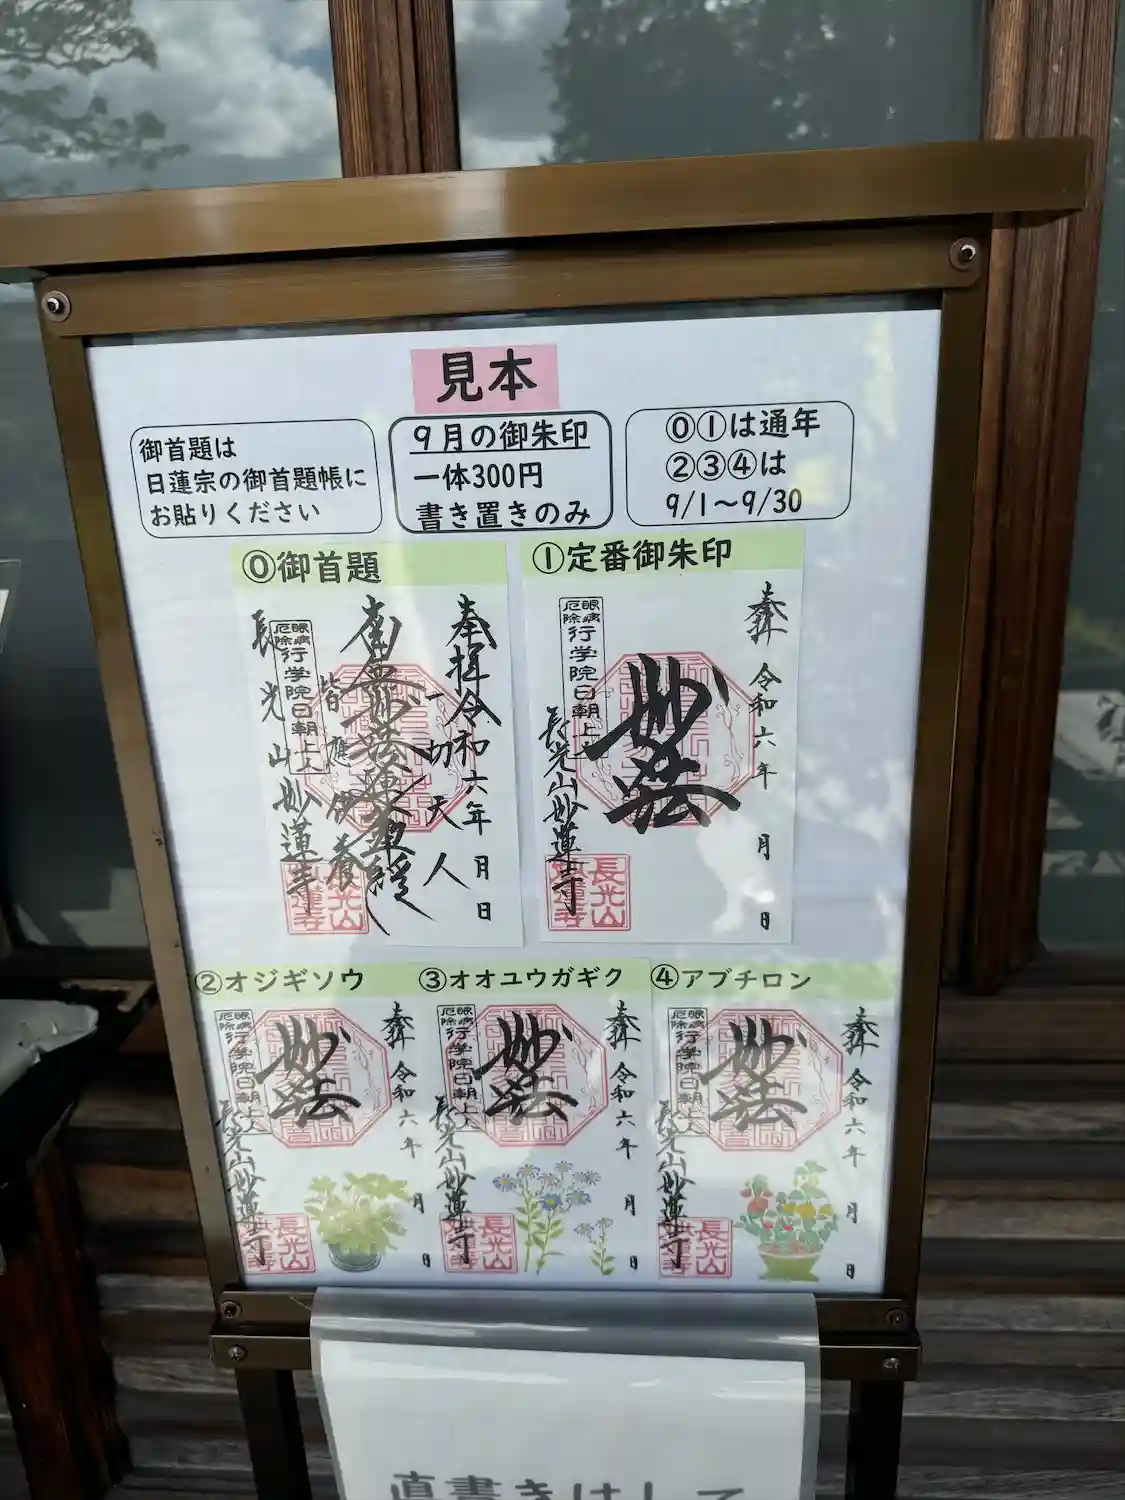 見本
御首題は
日蓮宗の御首題帳に
お貼りください
9月の御朱印
一体300円
書き置きのみ
⓪①は通年
②③④は
9/1～9/30
⓪御首題
奉拝 令和六年 月 日
一切天人
南無妙法蓮華経
皆應供養
眼病
厄除
行学院日朝上人
長光山妙蓮寺
長光山
妙蓮寺
①定番御朱印
奉拝 令和六年 月 日
妙法
眼病
厄除
行学院日朝上人
長光山妙蓮寺
長光山
妙蓮寺
②オジギソウ
奉拝 令和六年 月 日
妙法
眼病
厄除
行学院日朝上人
長光山妙蓮寺
長光山
妙蓮寺
③オオユウガギク
奉拝 令和六年 月 日
妙法
眼病
厄除
行学院日朝上人
長光山妙蓮寺
長光山
妙蓮寺
④アブチロン
奉拝 令和六年 月 日
妙法
眼病
厄除
行学院日朝上人
長光山妙蓮寺
長光山
妙蓮寺
直書きはして